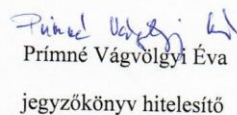 Prímné Vágvölgyi Éva
Prímné Vágvölgyi Éva
jegyzőkönyv hitelesítő